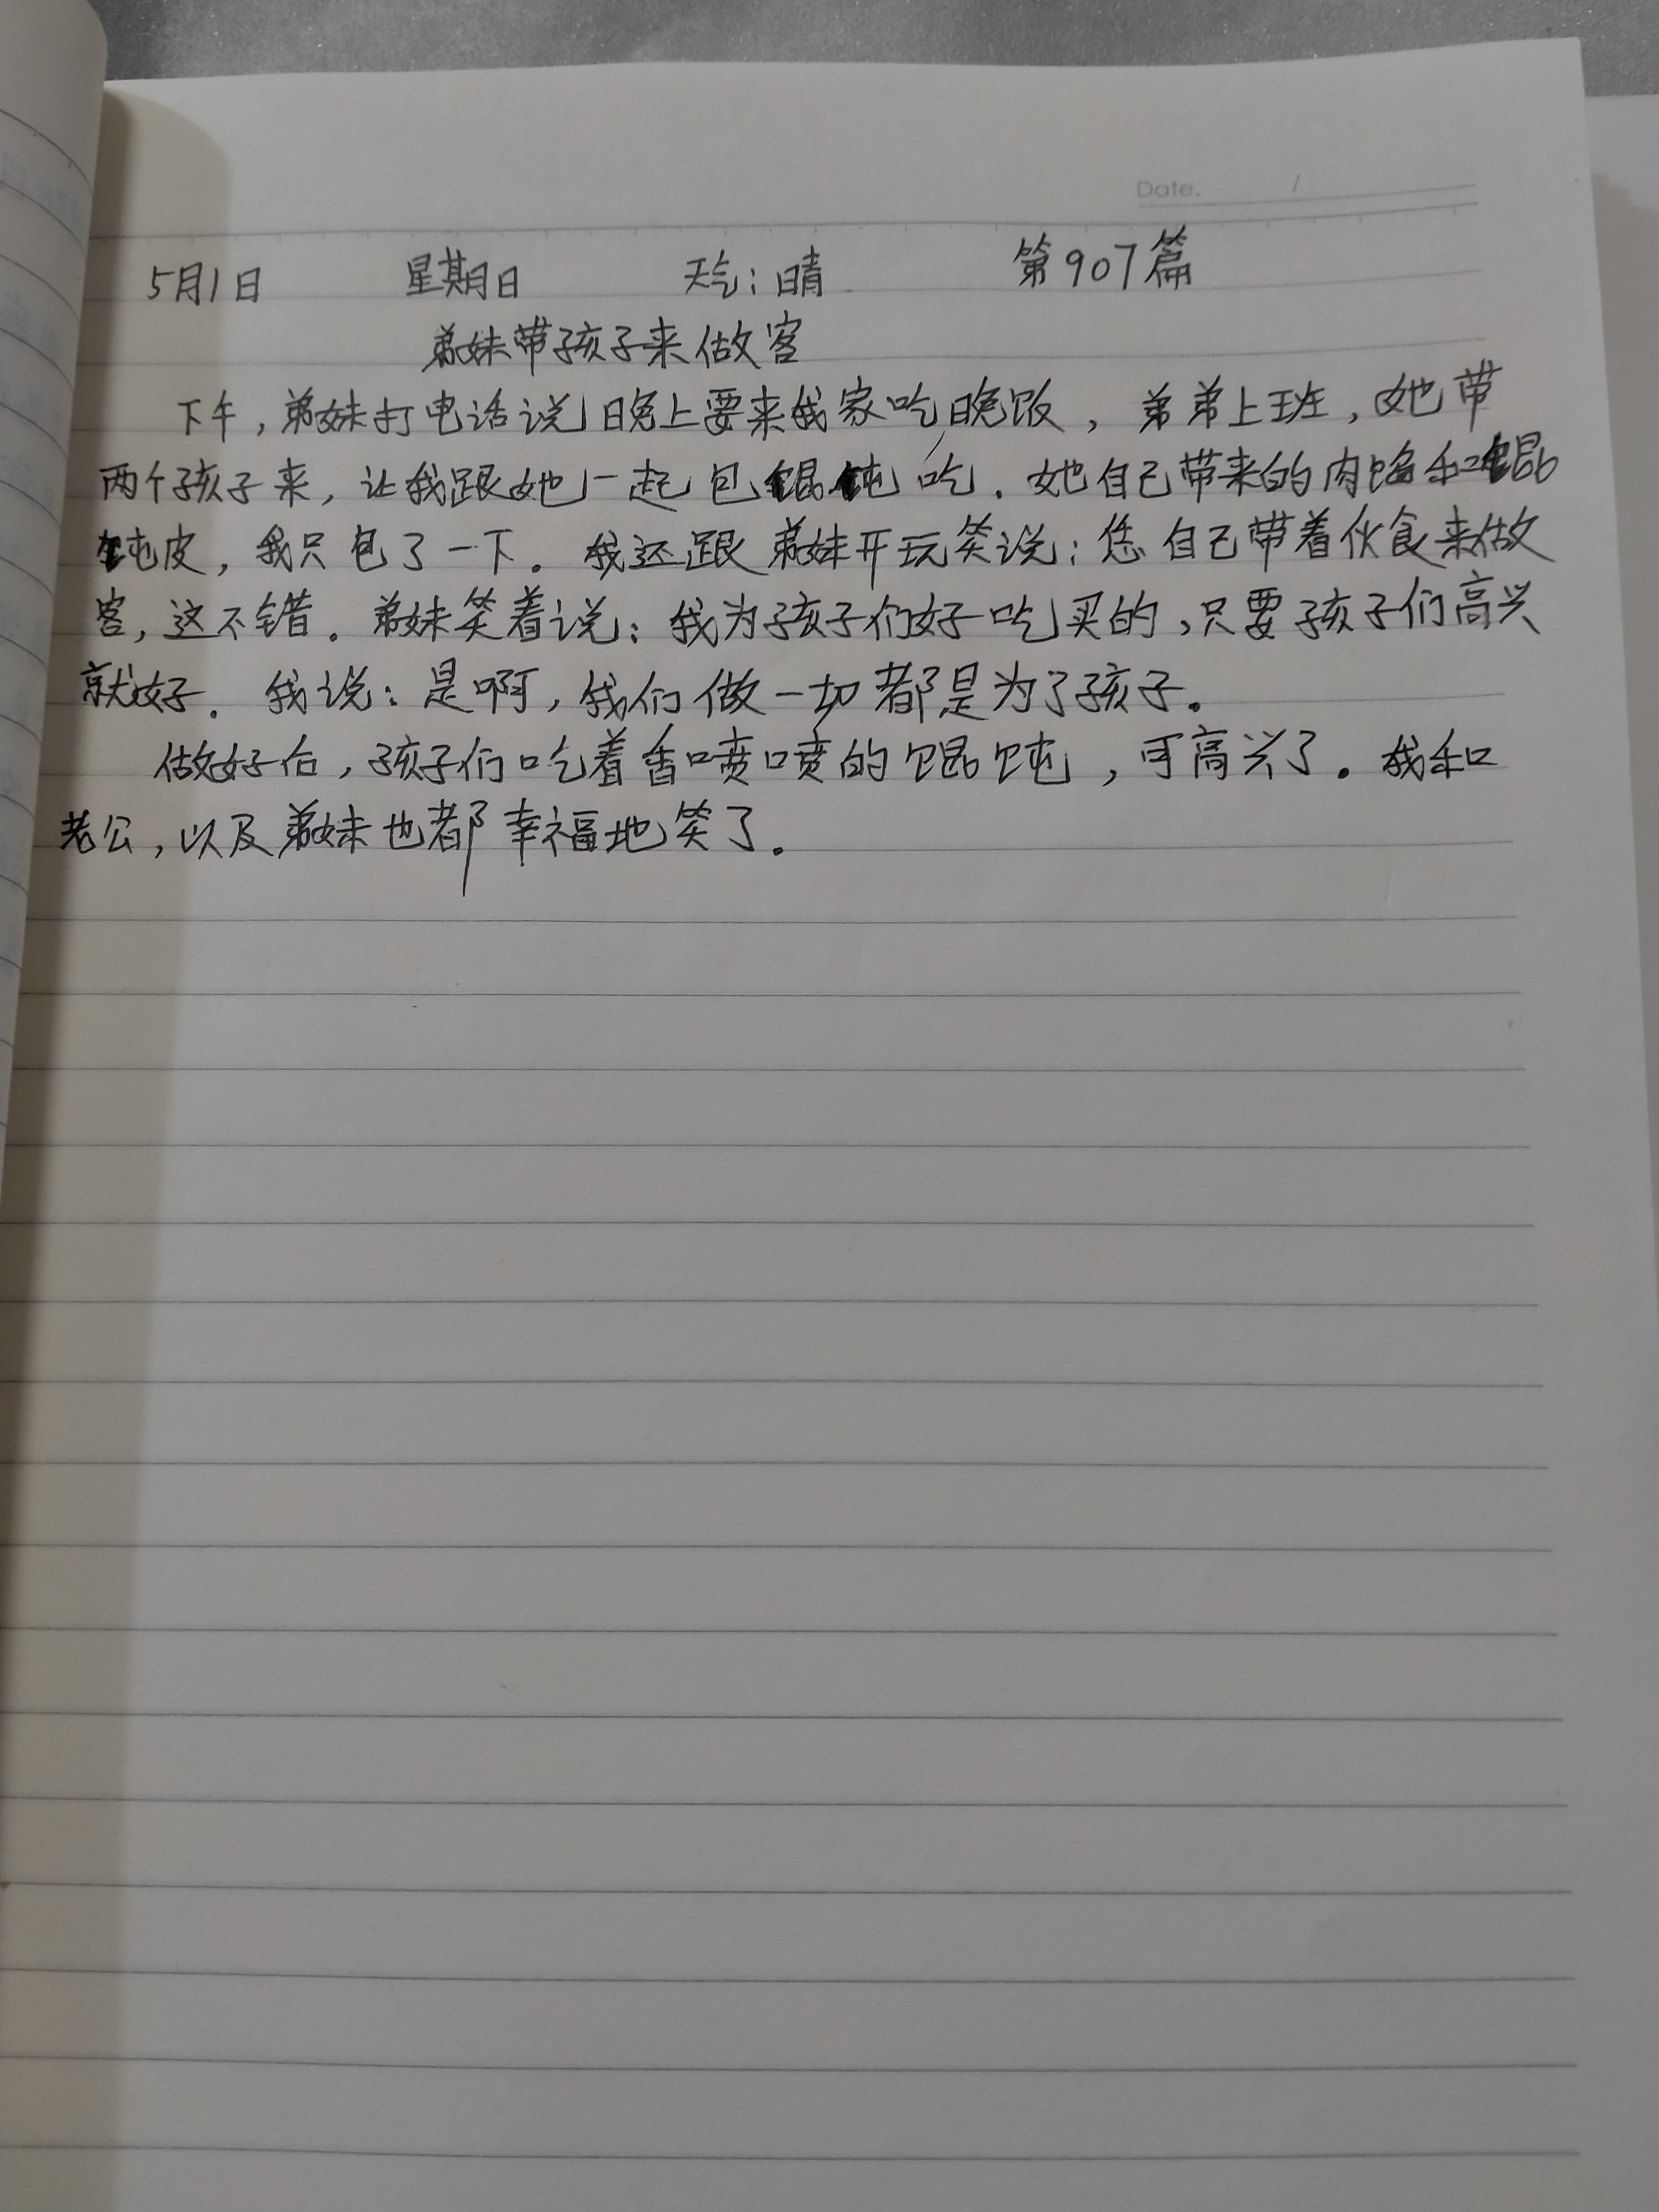 Date. /
5月1日 星期日 天气：晴 第907篇
弟妹带孩子来做客
下午，弟妹打电话说晚上要来我家吃晚饭，弟弟上班，她带
两个孩子来，让我跟她一起包馄饨吃．她自己带来的肉馅和馄
饨皮，我只包了一下。我还跟弟妹开玩笑说：您自己带着伙食来做
客，这不错．弟妹笑着说：我为孩子们好吃买的，只要孩子们高兴
就好．我说：是啊，我们做一切都是为了孩子。
做好后，孩子们吃着香喷喷的馄饨，可高兴了。我和
老公，以及弟妹也都幸福地笑了。